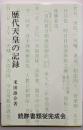 歴代天皇の記録
米田雄介著
続群書類従完成会